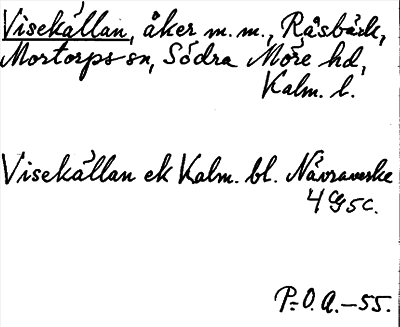 Visekällan, åker m.m., Råsbäck,
Mortorps sn, Södra Möre hd,
Kalm. l.
Visekällan ek Kalm. bl. Nävraverke
4 G 5 c.
P.-O. A. – 55.